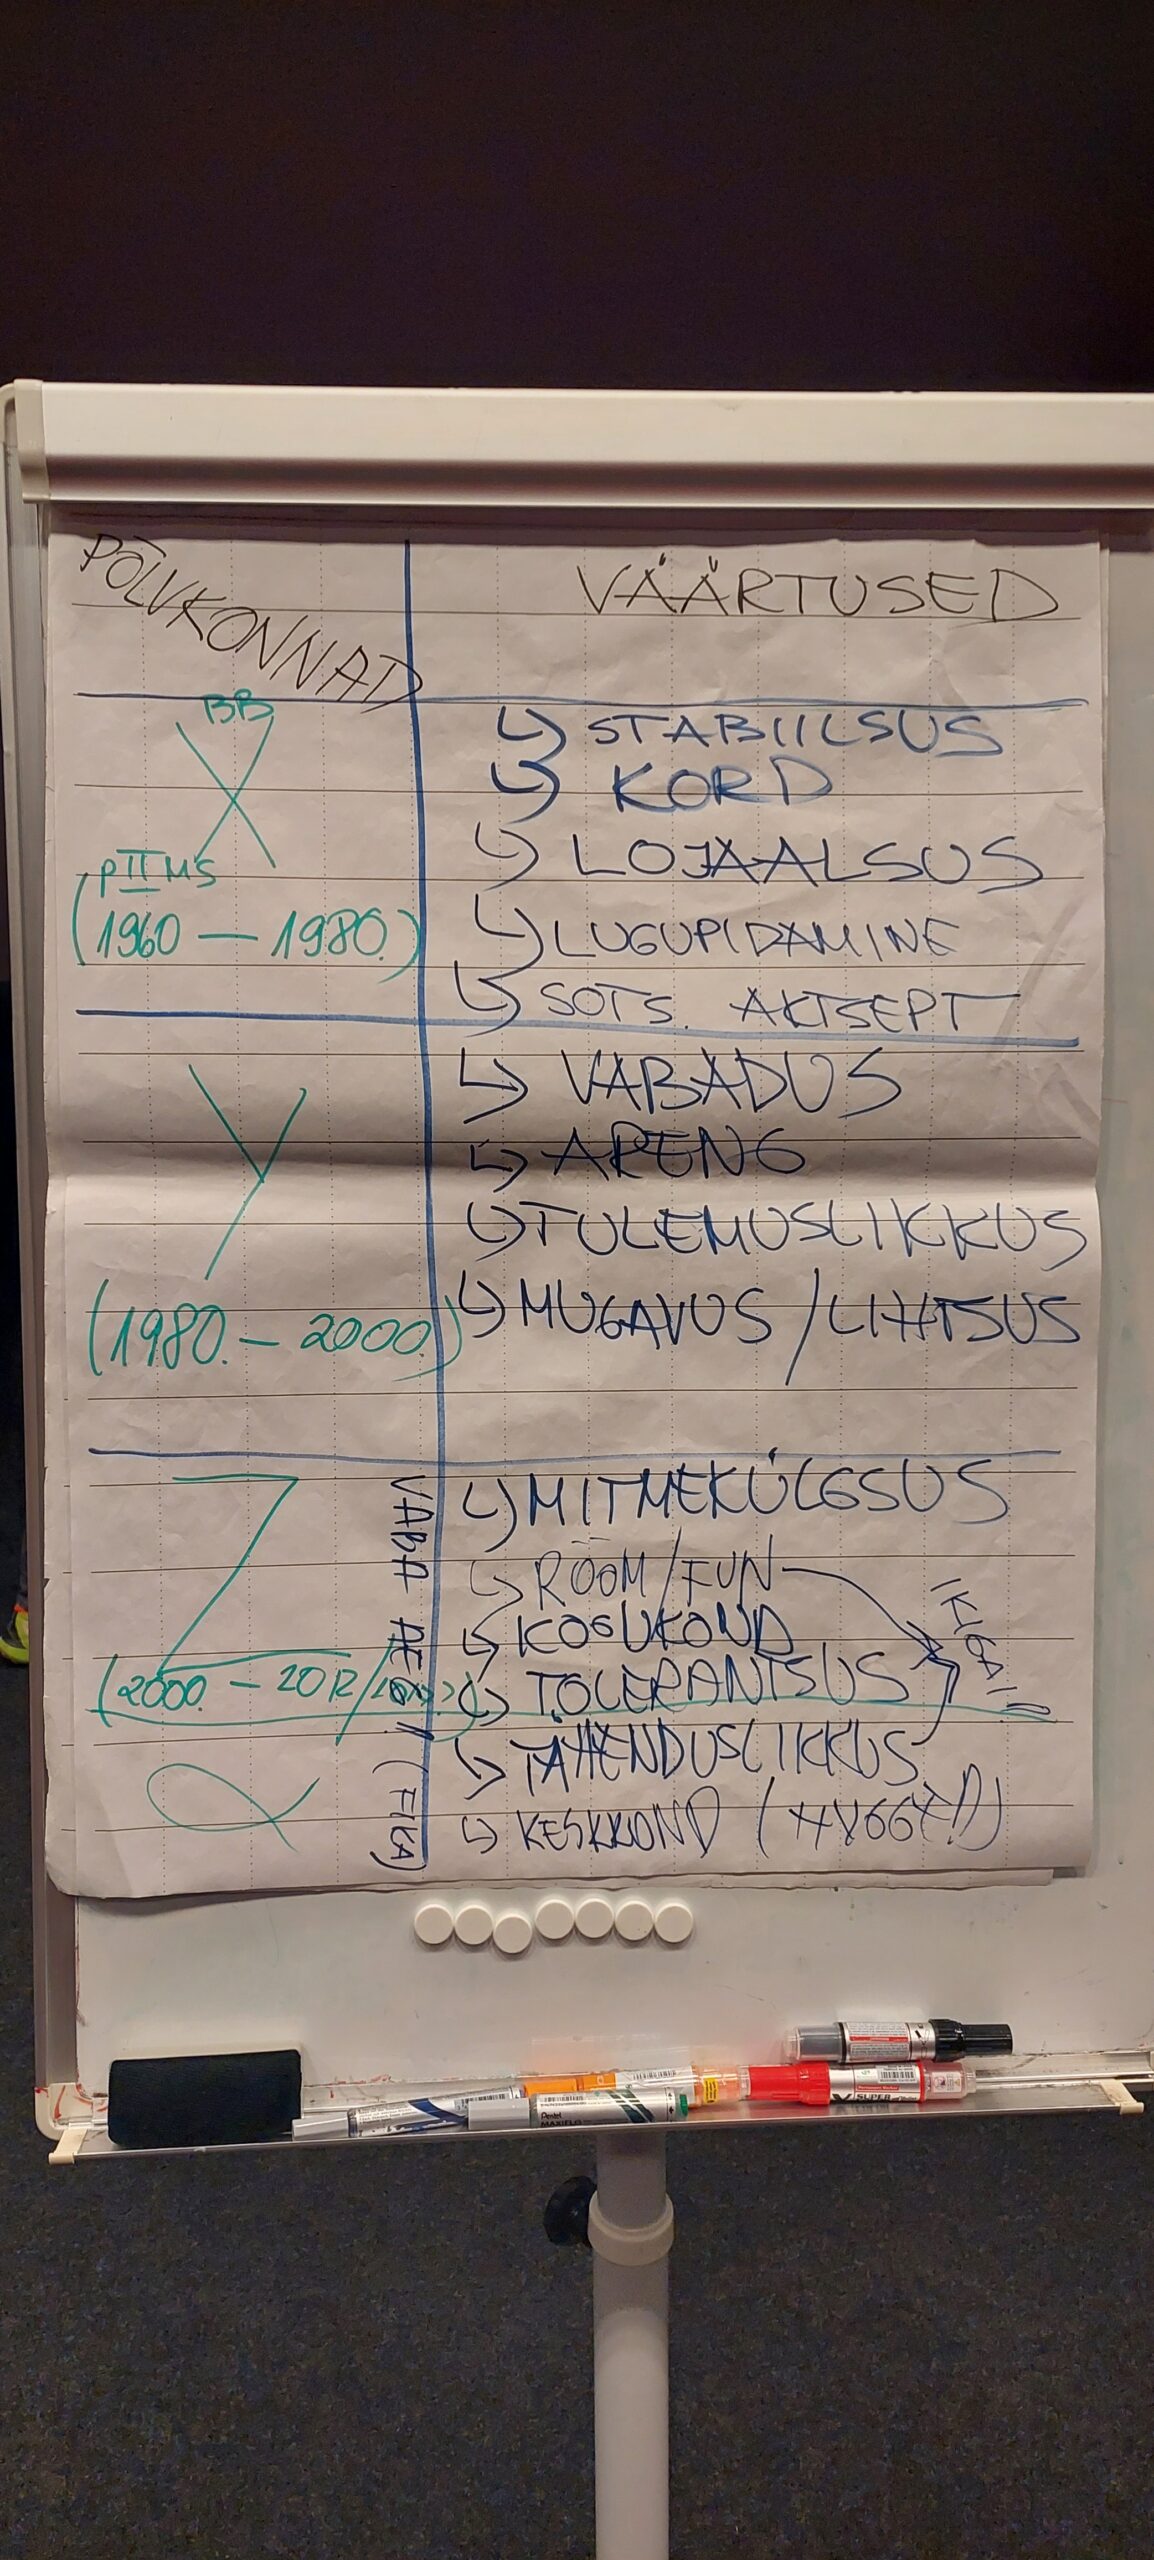 PÕLVKONNAD
VÄÄRTUSED
BB
X
PIIMS
(1960 — 1980.)
↳ STABIILSUS
↳ KORD
↳ LOJAALSUS
↳ LUGUPIDAMINE
↳ SOTS. AKTSEPT
Y
(1980. – 2000.)
↳ VABADUS
↳ ARENG
↳ TULEMUSLIKKUS
↳ MUGAVUS / LIHTSUS
Z
(2000. – 2012/
α
VABA AEG!! (FIKA)
↳ MITMEKÜLGSUS
↳ RÕÕM/FUN
↳ KOGUKOND
↳ TOLERANTSUS
↳ TÄHENDUSLIKKUS
↳ KESKKOND (HYGGE!!)
IKIGAI!!
Pentel
MAXIFLO
V SUPER